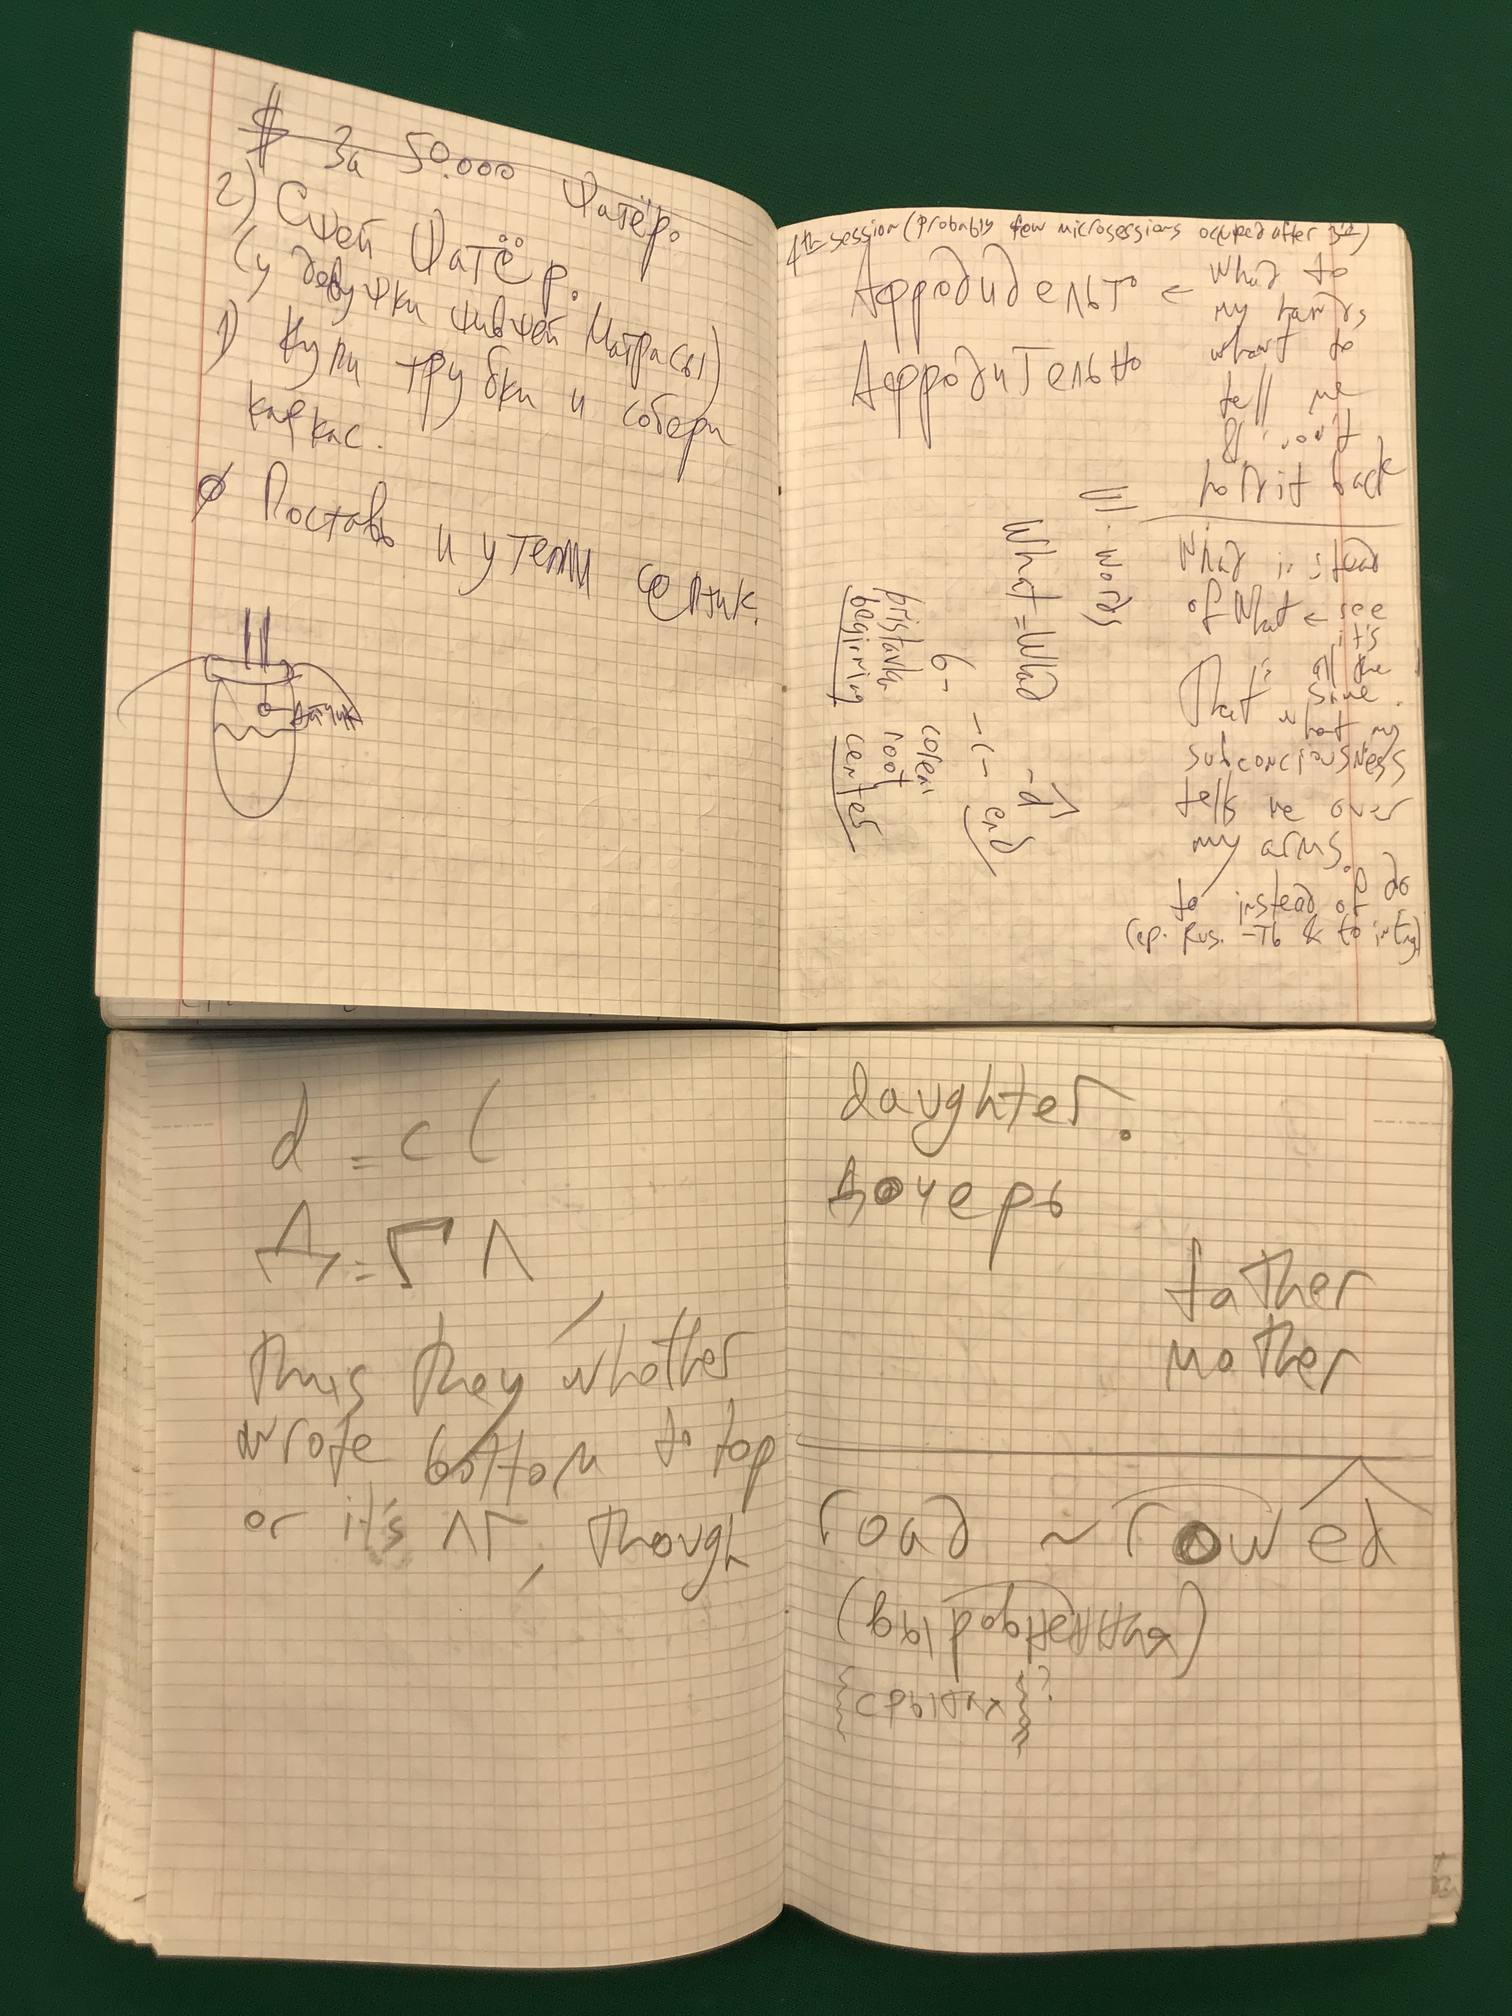 $ За 50.000 Фатёр.
2) Сшей Фатёр.
(у девушки шившей матрасы)
1) Купи трубки и собери
каркас.
Ø Поставь и утепли септик.
Датчик
4th session (probably few microsessions occupied after 3d)
Афродидельто ← whad to
my hands
whant to
tell me
& i won't
hold it back
Афродительно
Whad instead
of What ← see
it's
all the
same.
That's what my
subconciousness
tells me over
my arms.
to instead of do
(ср. Rus. -ть & to inting)
III. words
What = Whad
б- -с- -d
pristavka coren
begining root end
center
d = c (
Д = Г Л
Thus they whother
wrote bottom to top
or it's ЛГ, though
daughter.
Дочерь
father
mother
road ~ rowed
(выровненная)